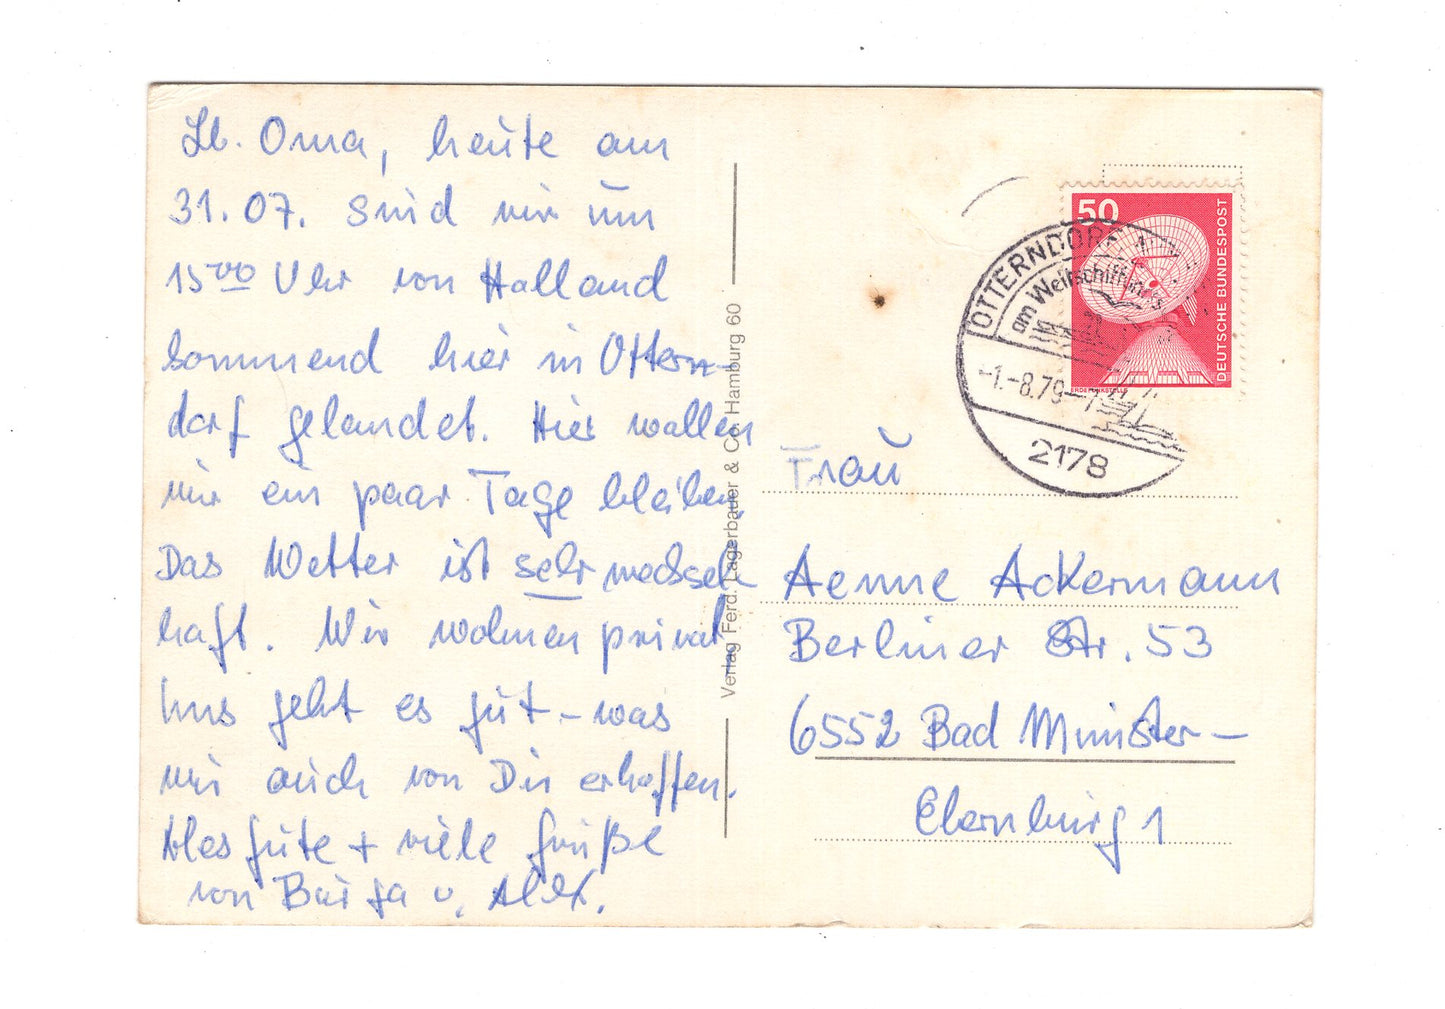 Lb. Oma, heute am
31.07. sind wir um
15⁰⁰ Uhr von Holland
kommend hier in Ottern-
dorf gelandet. Hier wollen
wir ein paar Tage bleiben.
Das Wetter ist sehr wechsel-
haft. Wir wohnen privat
Uns geht es gut – was
wir auch von Dir erhoffen.
Alles gute + viele Grüße
von Burga u.
Verlag Ferd. Lagerbauer & Co. Hamburg 60
50
DEUTSCHE BUNDESPOST
ERDEFUNKSTELLE
OTTERNDORF
am Weltschifffahrts
-1.-8.79-
2178
Frau
Aenne Ackermann
Berliner Str. 53
6552 Bad Münster-
Ebernburg 1